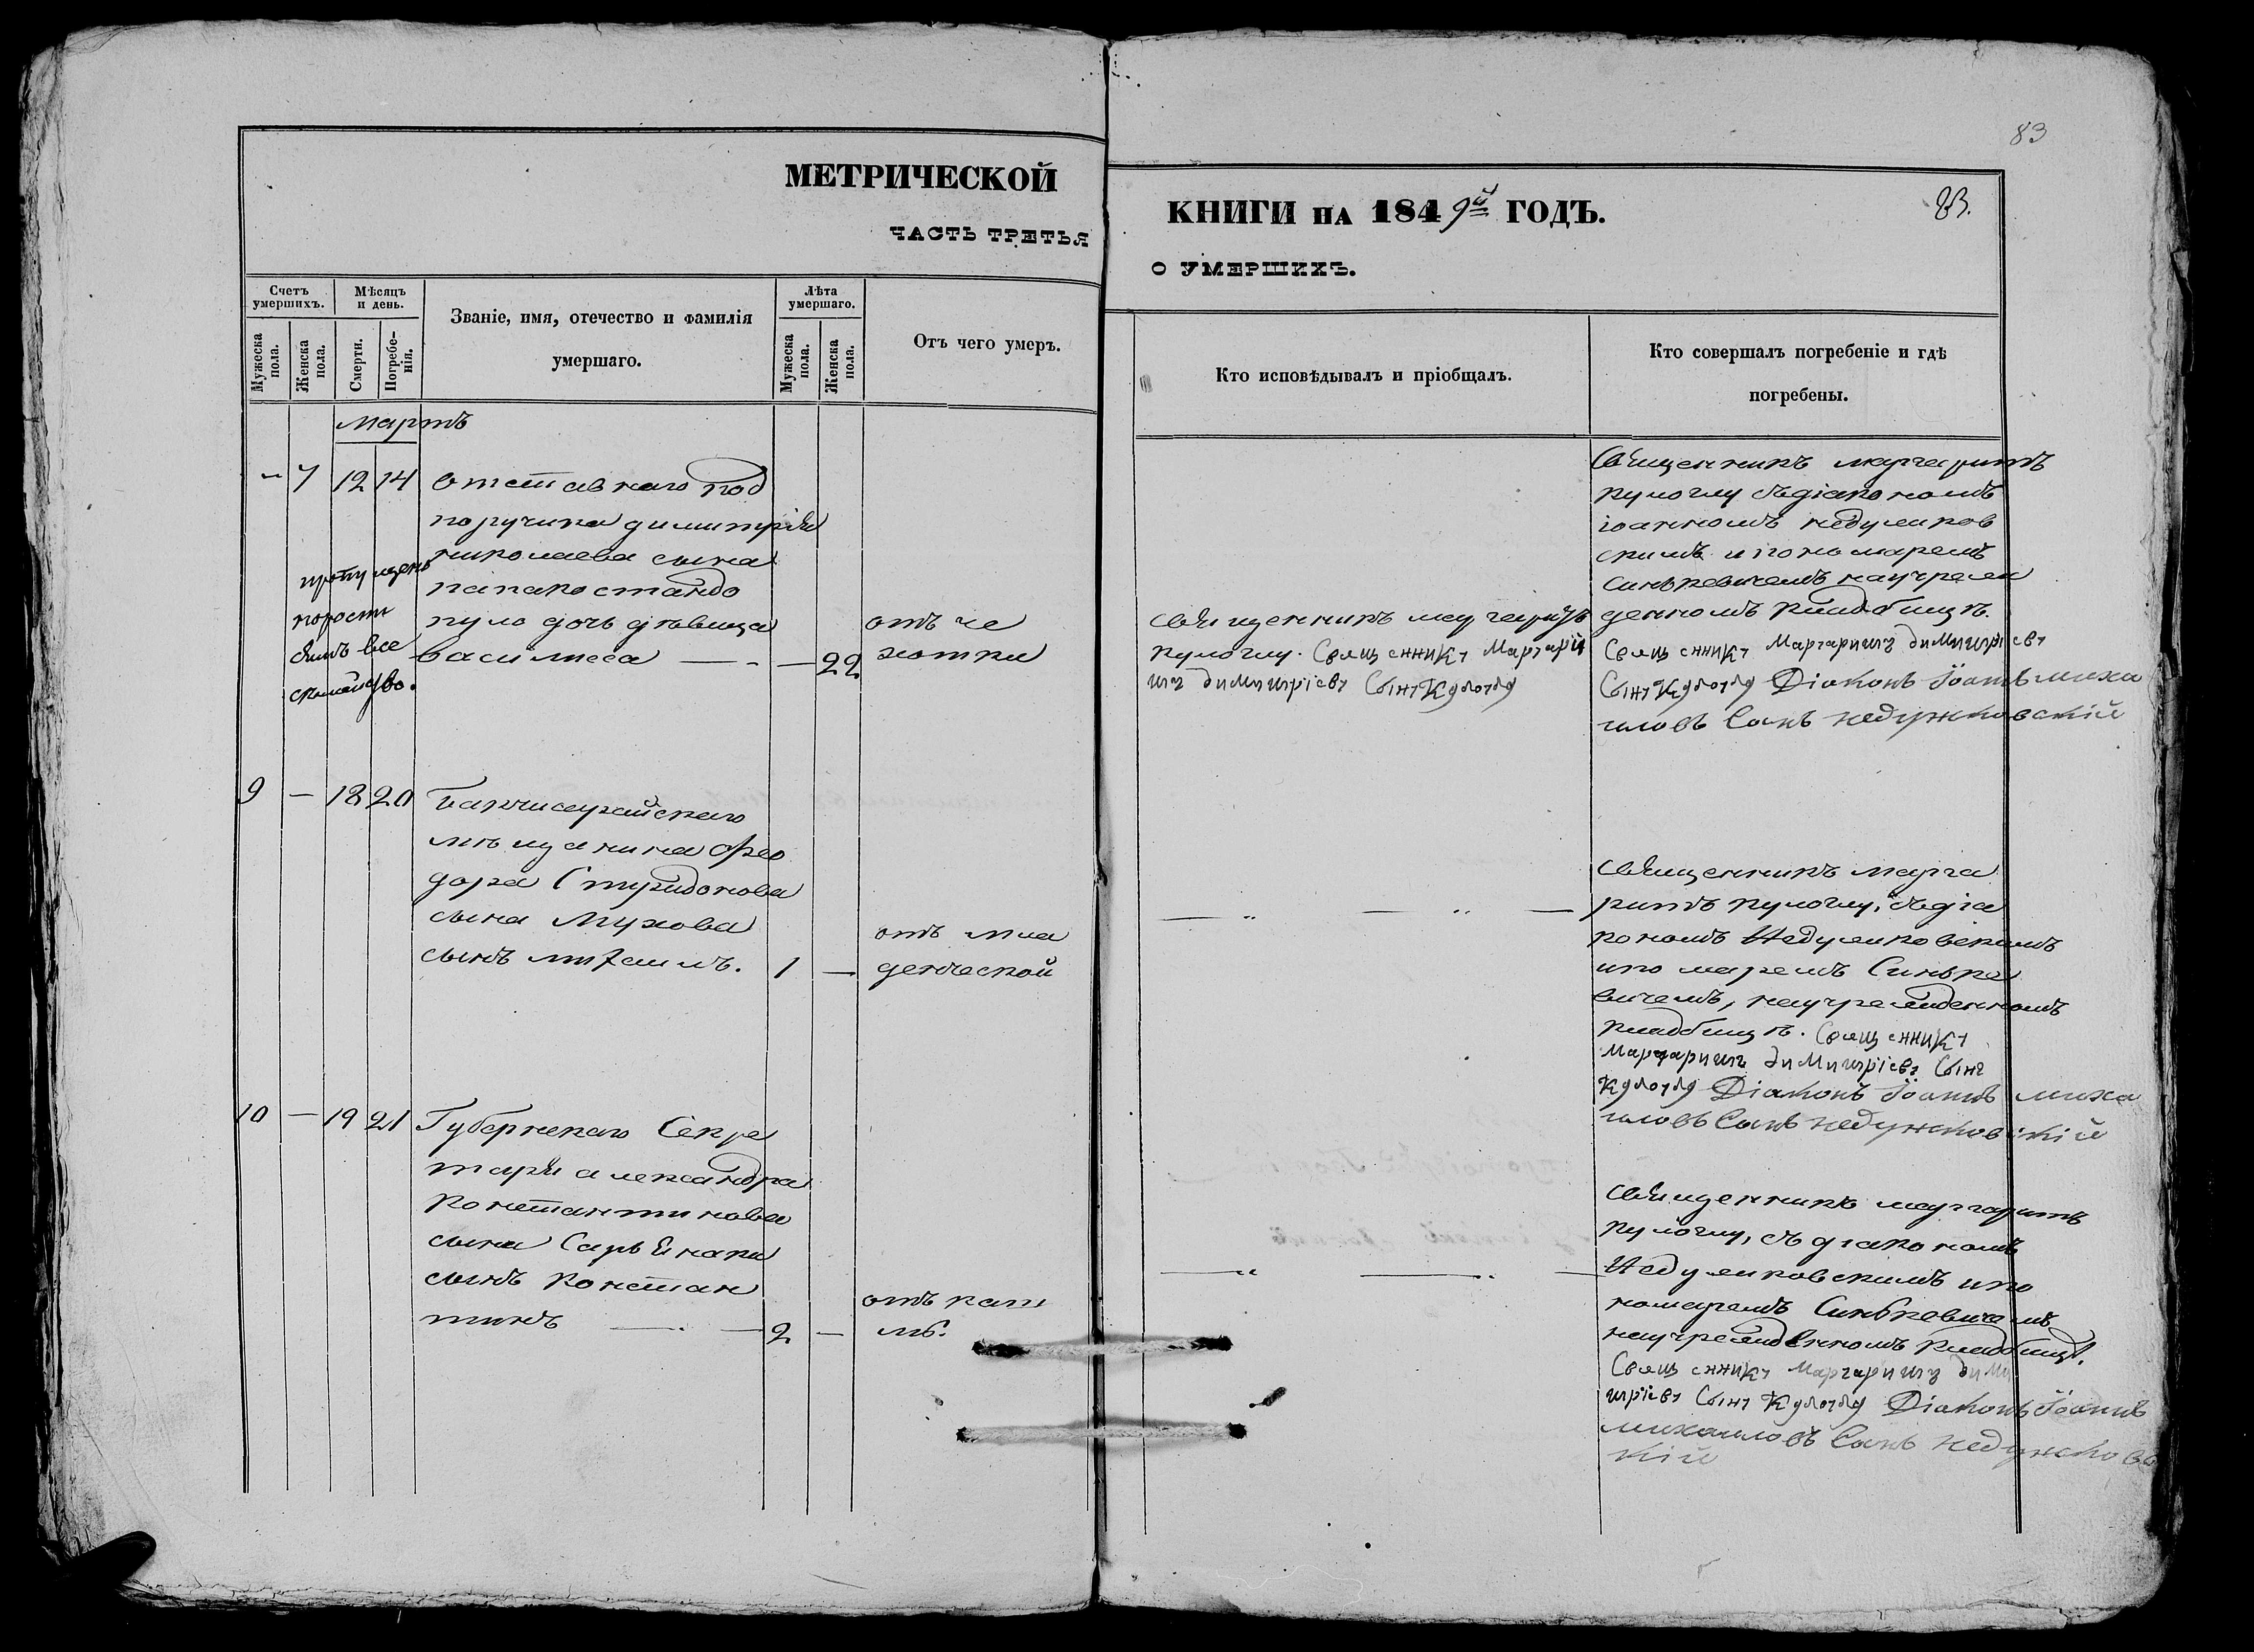 83
МЕТРИЧЕСКОЙ
ЧАСТЬ ТРЕТЬЯ
КНИГИ НА 1849й ГОДЪ.
83.
О УМЕРШИХЪ.
Счетъ умершихъ.
Мужеска пола.
Женска пола.
Мѣсяцъ и день.
Смерти.
Погребенія.
Званіе, имя, отечество и фамилія
умершаго.
Лѣта умершаго.
Мужеска пола.
Женска пола.
Отъ чего умеръ.
Кто исповѣдывалъ и пріобщалъ.
Кто совершалъ погребеніе и гдѣ
погребены.
Мартъ
– 7 12 14
отставнаго под
поручика димитрія
николаева сына
папакостандо
пуло дочь дѣвица
василиса — – — 22
отъ ча
хотки
священникъ маргаритъ
кулоглу. Священникъ Маргари
тъ димитріевъ Сынъ Кулоглу
Священникъ маргаритъ
кулоглу съ діакономъ
іоанномъ недужков
скимъ и пономаремъ
синькевичемъ на учреж
денномъ кладбищѣ.
Священникъ Маргаритъ димитріевъ
Сынъ Кулоглу Діаконъ Іоаннъ миха
иловъ Сынъ недужковскій
9 — 18 20
Бахчисарайскаго
мѣщанина Фео
дора Спиридонова
сына Мухова
сынъ михаилъ. 1 —
отъ мла
денческой
священникъ марга
ритъ кулоглу, съ діа
кономъ Недужковскимъ
и по маремъ Синьке
вичемъ, на учрежденномъ
кладбищѣ. Священникъ
Маргаритъ димитріевъ Сынъ
Кулоглу Діаконъ Іоаннъ миха
иловъ Сынъ недужковскій
10 — 19 21
Губернскаго Секре
таря александра
Константинова
сына
сынъ Констан
тинъ — . — 2 —
отъ каш
ля.
священникъ маргаритъ
кулоглу, съ діакономъ
Недужковскимъ и по
номаремъ Синькевичемъ
на учрежденномъ кладбищѣ.
Священникъ Маргаритъ дими
тріевъ Сынъ Кулоглу Діаконъ Іоаннъ
михаиловъ Сынъ недужковс
кій